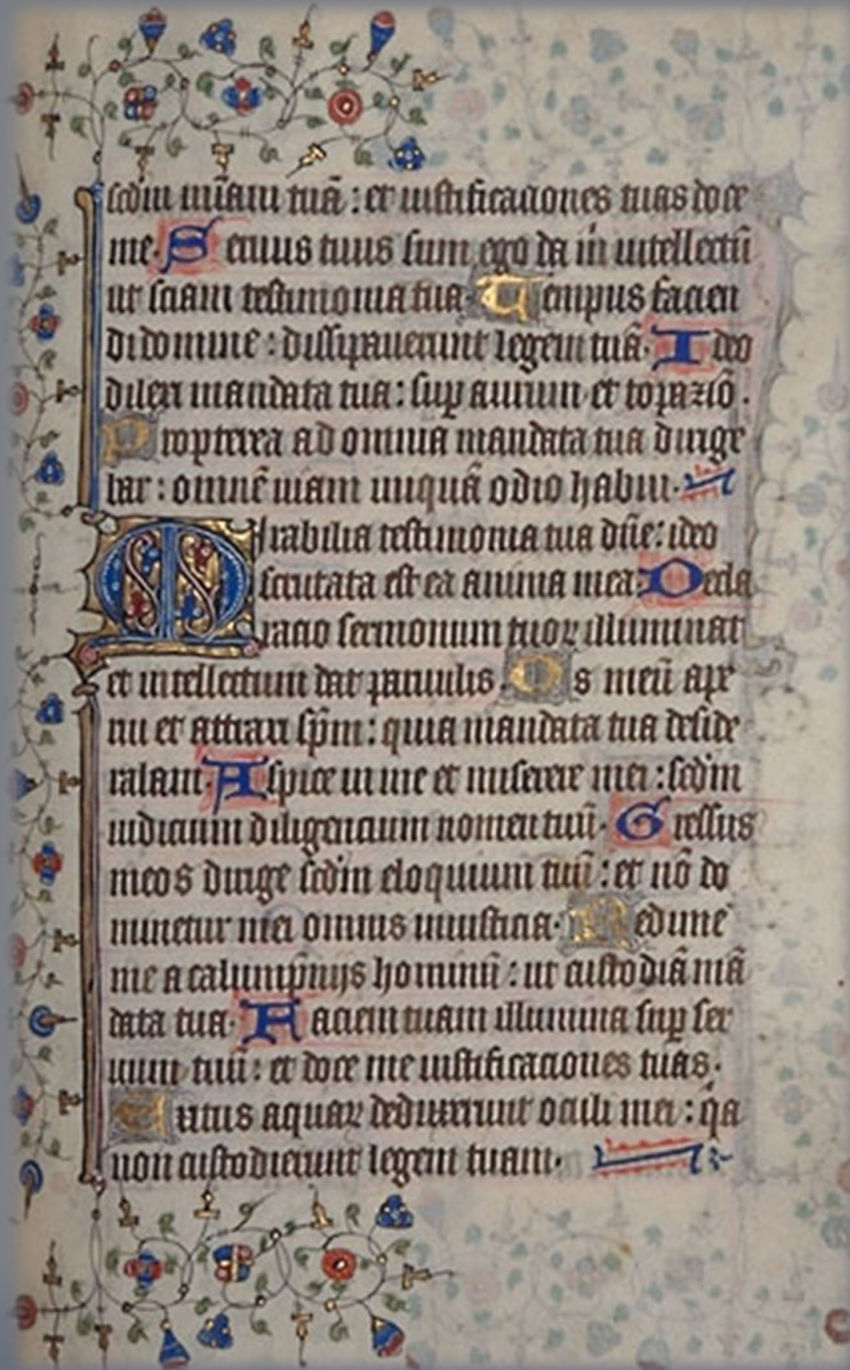 scdm miam tuā : et iustificaciones tuas doce
me. Seruus tuus sum ego da m intellectū
ut sciam testimonia tua. Tempus facien
di domine : dissipauerunt legem tuā. Ideo
dilexi mandata tua : sup aurum et topaziō.
Propterea ad omnia mandata tua dirige
bar : omnē uiam iniquā odio habui.
Mirabilia testimonia tua dn̄e : ideo
scrutata est ea anima mea. Decla
racio sermonum tuoꝝ illuminat
et intellectum dat paruulis. Os meū ape
rui et attraxi sp̄m : quia mandata tua deside
rabam. Aspice in me et miserere mei : scdm
iudicium diligencium nomen tuū. Gressus
meos dirige scdm eloquium tuū : et nō do
minetur mei omnis iniusticia. Redime
me a calumpniis hominū : ut custodiā mā
data tua. Faciem tuam illumina sup ser
uum tuū : et doce me iustificaciones tuas.
Exitus aquaꝝ deduxerunt oculi mei : qa
non custodierunt legem tuam.